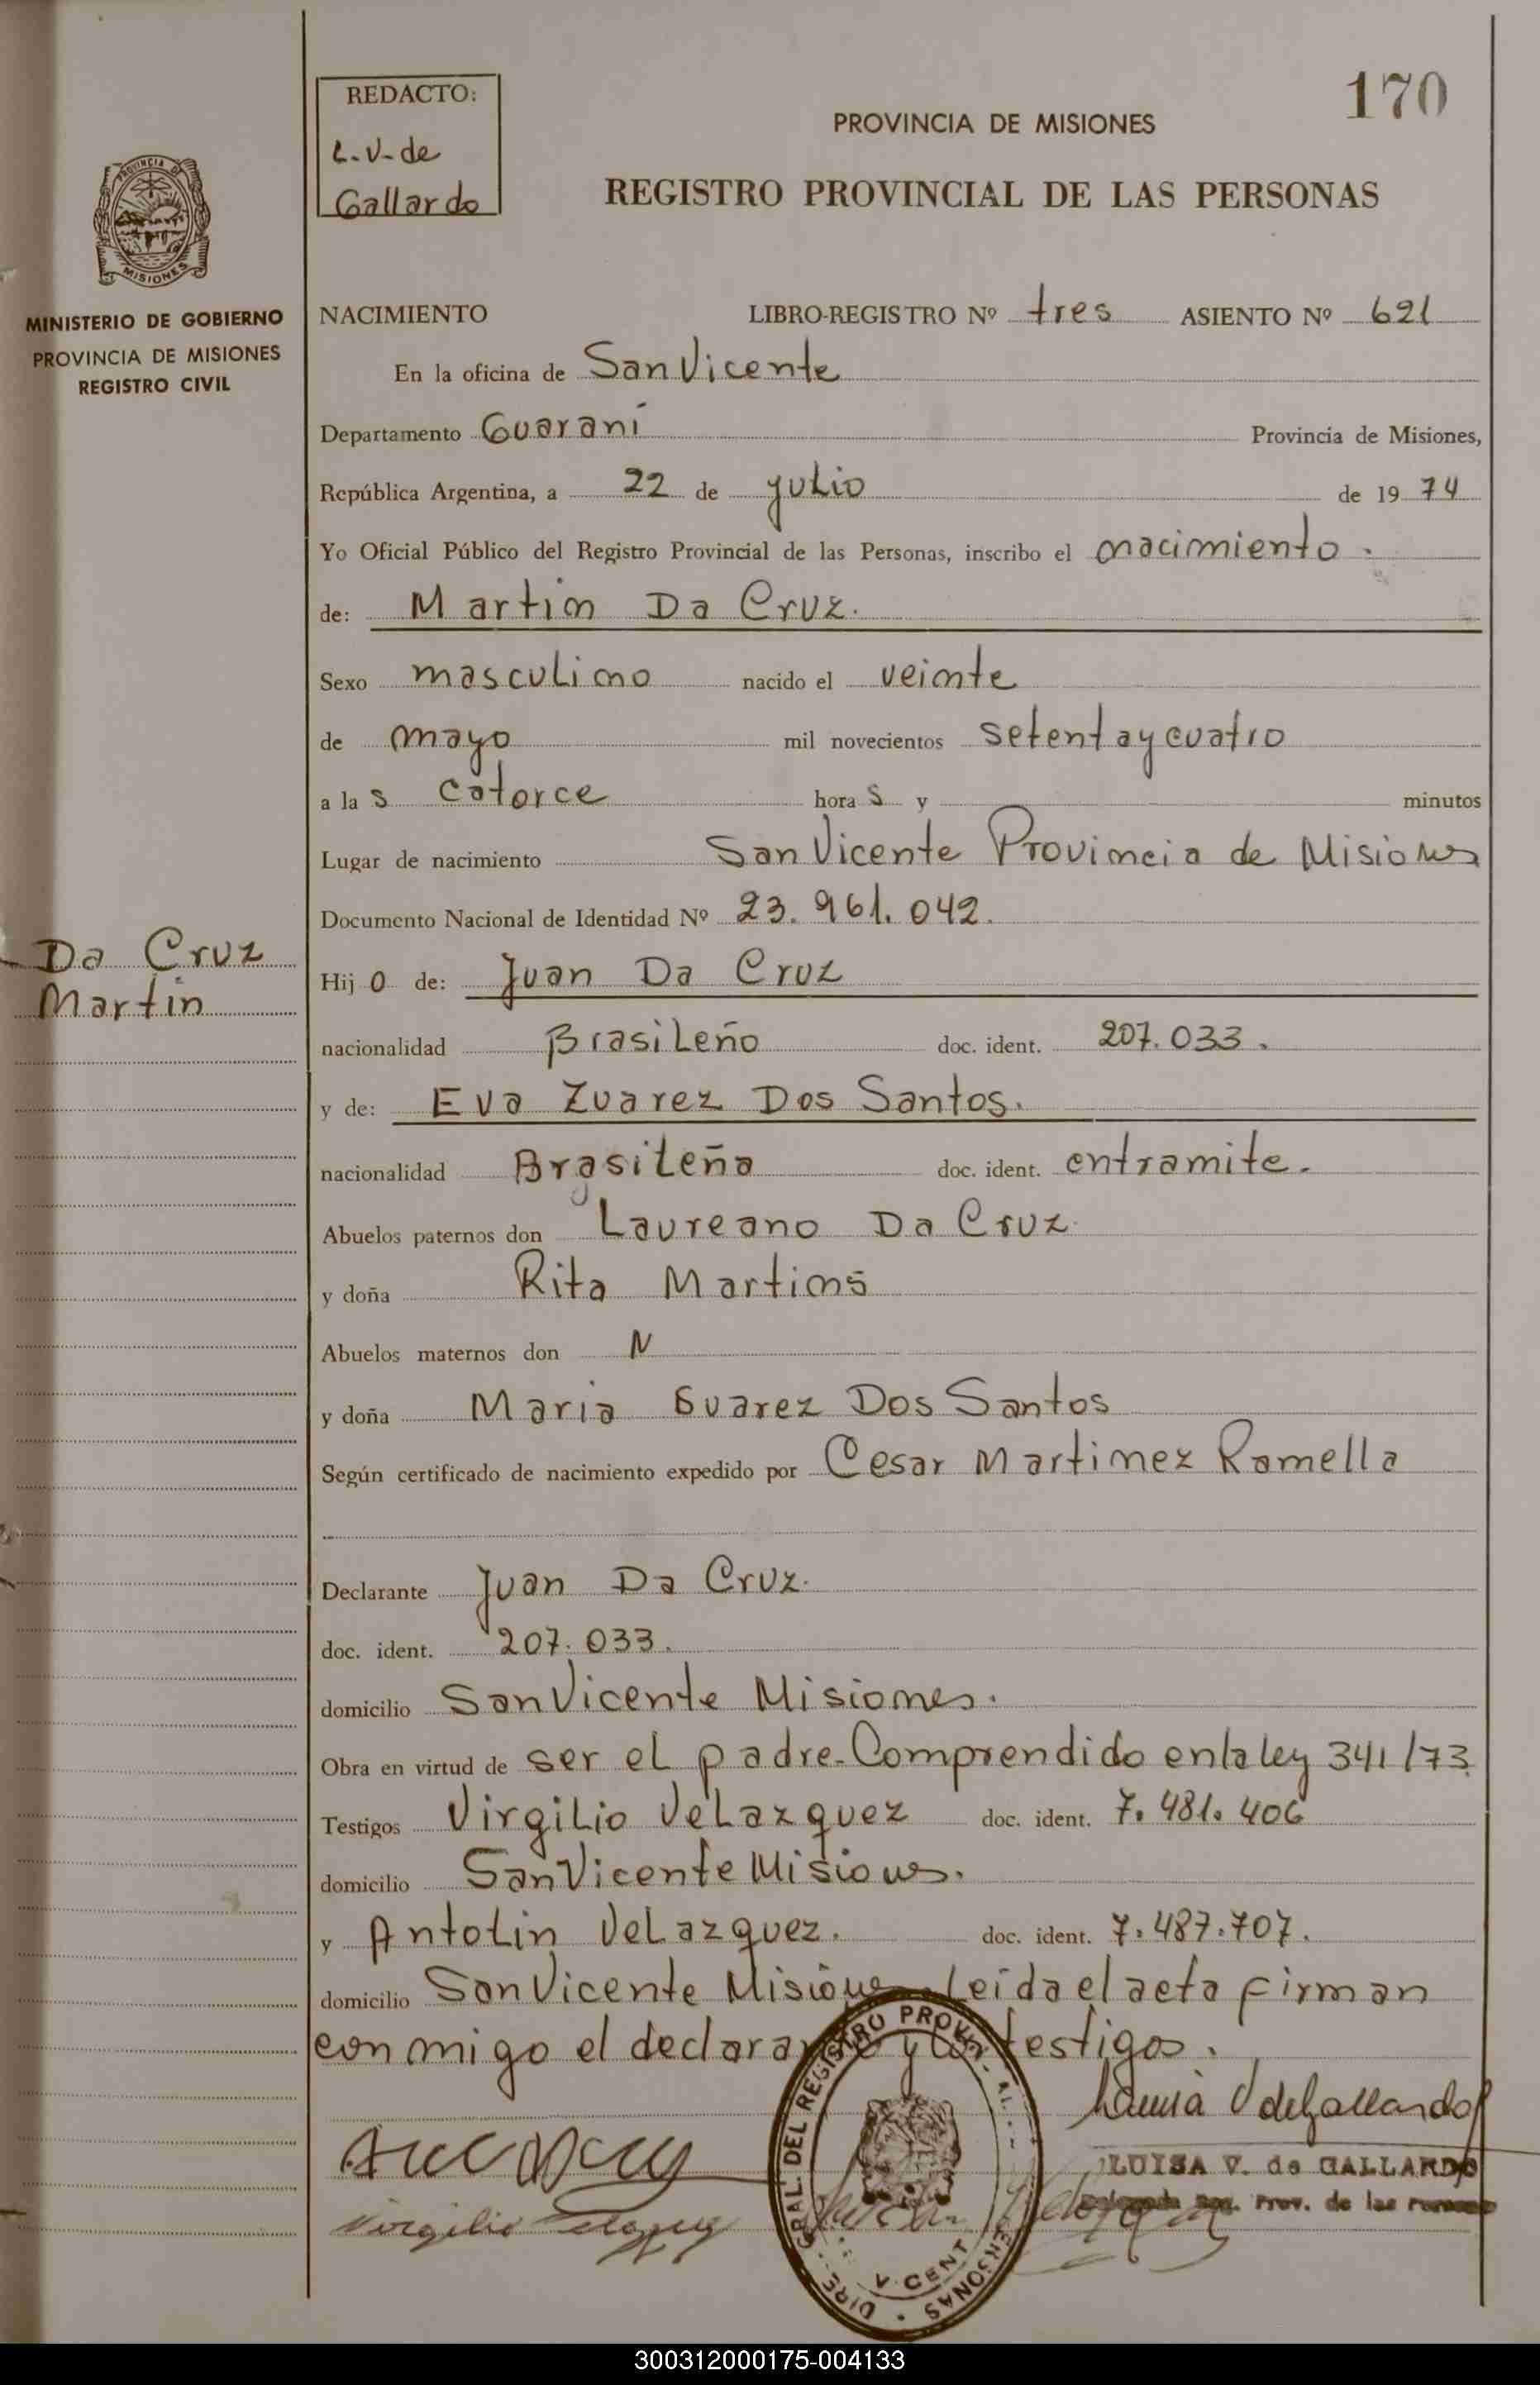 170
REDACTO:
L. V. de
Gallardo
PROVINCIA DE MISIONES
REGISTRO PROVINCIAL DE LAS PERSONAS
PROVINCIA DE
MISIONES
MINISTERIO DE GOBIERNO
PROVINCIA DE MISIONES
REGISTRO CIVIL
NACIMIENTO LIBRO-REGISTRO Nº tres ASIENTO Nº 621
En la oficina de San Vicente
Departamento Guaraní Provincia de Misiones,
República Argentina, a 22 de julio de 19 74
Yo Oficial Público del Registro Provincial de las Personas, inscribo el nacimiento.
de: Martin Da Cruz.
Sexo masculino nacido el veinte
de mayo mil novecientos setenta y cuatro
a la s catorce hora s y minutos
Lugar de nacimiento San Vicente Provincia de Misiones
Documento Nacional de Identidad Nº 23.961.042.
Da Cruz
Martin
Hij o de: Juan Da Cruz
nacionalidad Brasileño doc. ident. 207.033.
y de: Eva Zuarez Dos Santos.
nacionalidad Brasileña doc. ident. entramite.
Abuelos paternos don Laureano Da Cruz
y doña Rita Martins
Abuelos maternos don N
y doña Maria Suarez Dos Santos
Según certificado de nacimiento expedido por Cesar Martinez Ramella
Declarante Juan Da Cruz.
doc. ident. 207.033.
domicilio San Vicente Misiones.
Obra en virtud de ser el padre-Comprendido en la ley 341/73
Testigos Virgilio Velazquez doc. ident. 7.481.406
domicilio San Vicente Misiones.
y Antolin Velazquez. doc. ident. 7.487.707.
domicilio San Vicente Misiones. Leída el acta firman
conmigo el declarante y los testigos.
DIRE. GRAL. DEL REGISTRO PROV. PERSONAS
V.CENT
LUISA V. de GALLARDO
Prov. de las
Virgilio
300312000175-004133